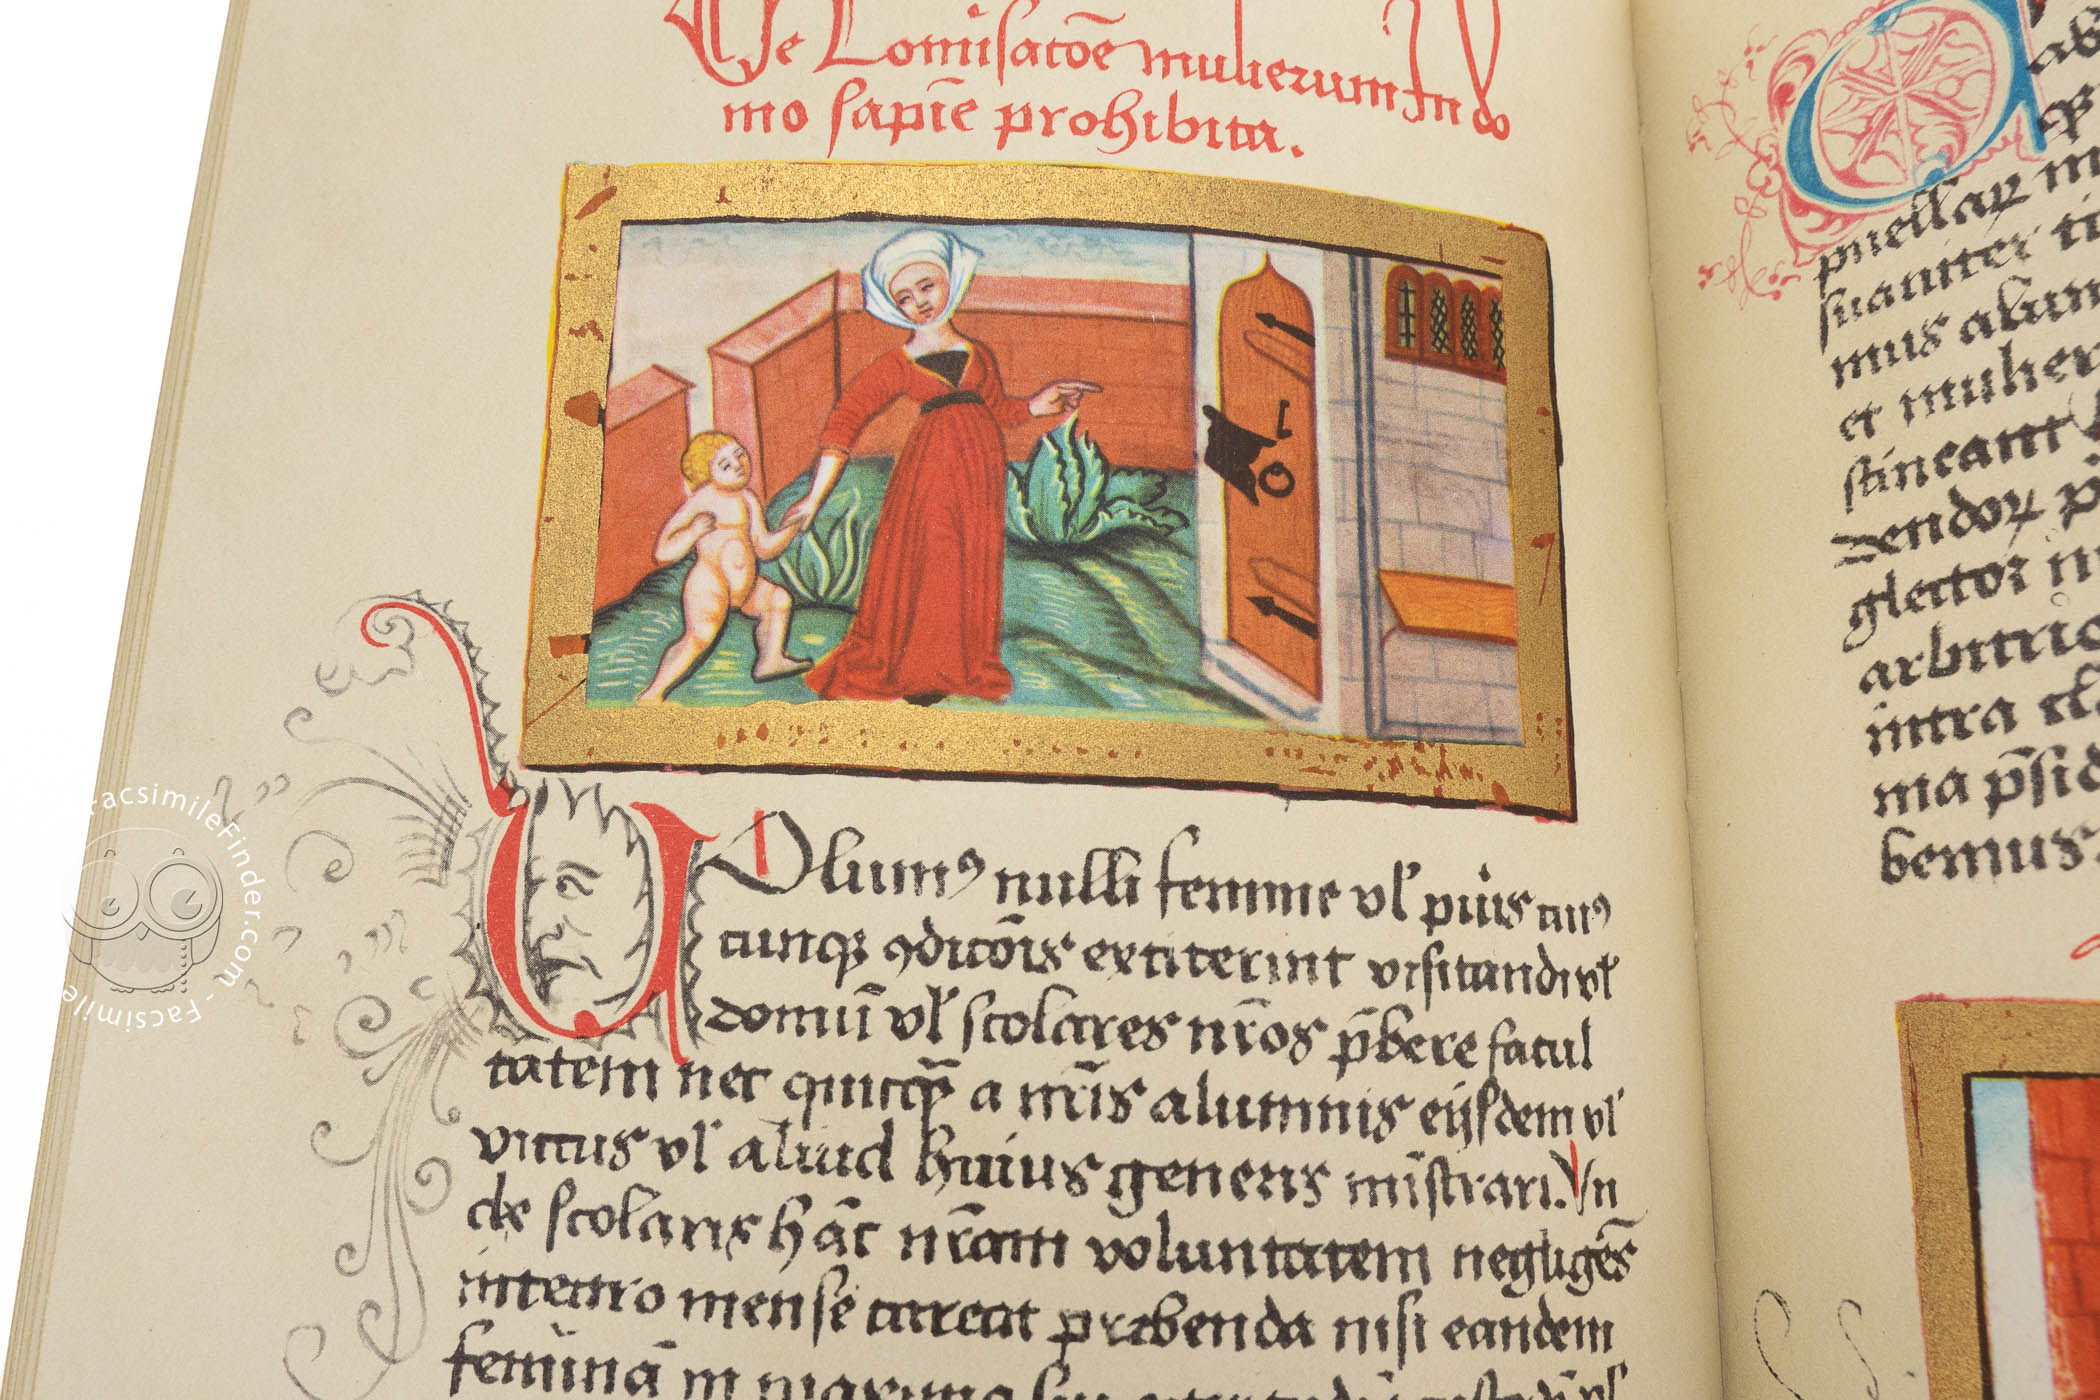 De Comisatōe mulierum In do
mo sapīe prohibita.
VOlumꝰ nulli femine vl' puis cuiꝰ
cunqꝫ ꝯditōis extiterint visitandi vl'
domū vl' scolares nr̄os p̄bere facul
tatem nec quicq̄ a nr̄is alumnis eijsdem vl'
victus vl' aliud huius generis mīstrari. Vn
de scolaris hāc nr̄am voluntatem negligēs
integro mense careat prebenda nisi eandem
feminā in
ab
puellaꝝ m
suauiter ti
mus alum
et mulier
stineant
dendoꝝ p
glector m
arbitrio
intra
ma p̄sid
bemus
Facsimile - FacsimileFinder.com